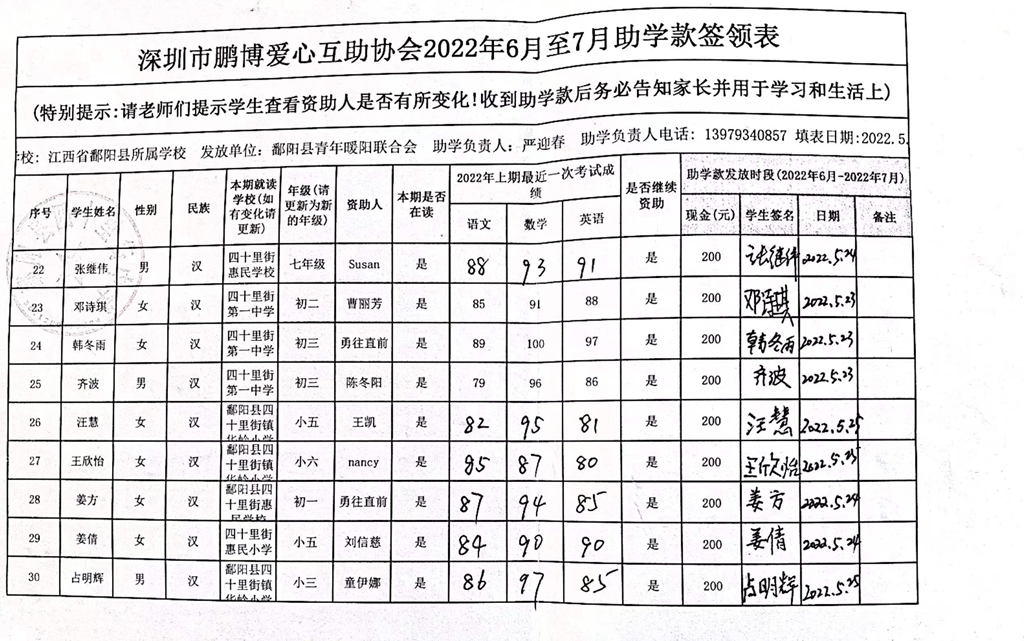 深圳市鹏博爱心互助协会2022年6月至7月助学款签领表
(特别提示:请老师们提示学生查看资助人是否有所变化!收到助学款后务必告知家长并用于学习和生活上)
学校: 江西省鄱阳县所属学校 发放单位: 鄱阳县青年暖阳联合会 助学负责人: 严迎春 助学负责人电话: 13979340857 填表日期:2022.5.
序号 学生姓名 性别 民族 本期就读学校(如有变化请更新) 年级(请更新为新的年级) 资助人 本期是否在读 2022年上期最近一次考试成绩 是否继续资助 助学款发放时段(2022年6月-2022年7月)
语文 数学 英语 现金(元) 学生签名 日期 备注
22 张继伟 男 汉 四十里街惠民学校 七年级 Susan 是 88 93 91 是 200 张继伟 2022.5.24
23 邓诗琪 女 汉 四十里街第一中学 初二 曹丽芳 是 85 91 88 是 200 邓诗琪 2022.5.23
24 韩冬雨 女 汉 四十里街第一中学 初三 勇往直前 是 89 100 97 是 200 韩冬雨 2022.5.23
25 齐波 男 汉 四十里街第一中学 初三 陈冬阳 是 79 96 86 是 200 齐波 2022.5.23
26 汪慧 女 汉 鄱阳县四十里街镇华龄小学 小五 王凯 是 82 95 81 是 200 汪慧 2022.5.25
27 王欣怡 女 汉 鄱阳县四十里街镇 小六 nancy 是 95 87 80 是 200 王欣怡 2022.5.25
28 姜方 女 汉 鄱阳县四十里街惠民学校 初一 勇往直前 是 87 94 85 是 200 姜方 2022.5.24
29 姜倩 女 汉 四十里街惠民小学 小五 刘信慈 是 84 90 90 是 200 姜倩 2022.5.24
30 占明辉 男 汉 鄱阳县四十里街镇 小三 童伊娜 是 86 97 85 是 200 占明辉 2022.5.25